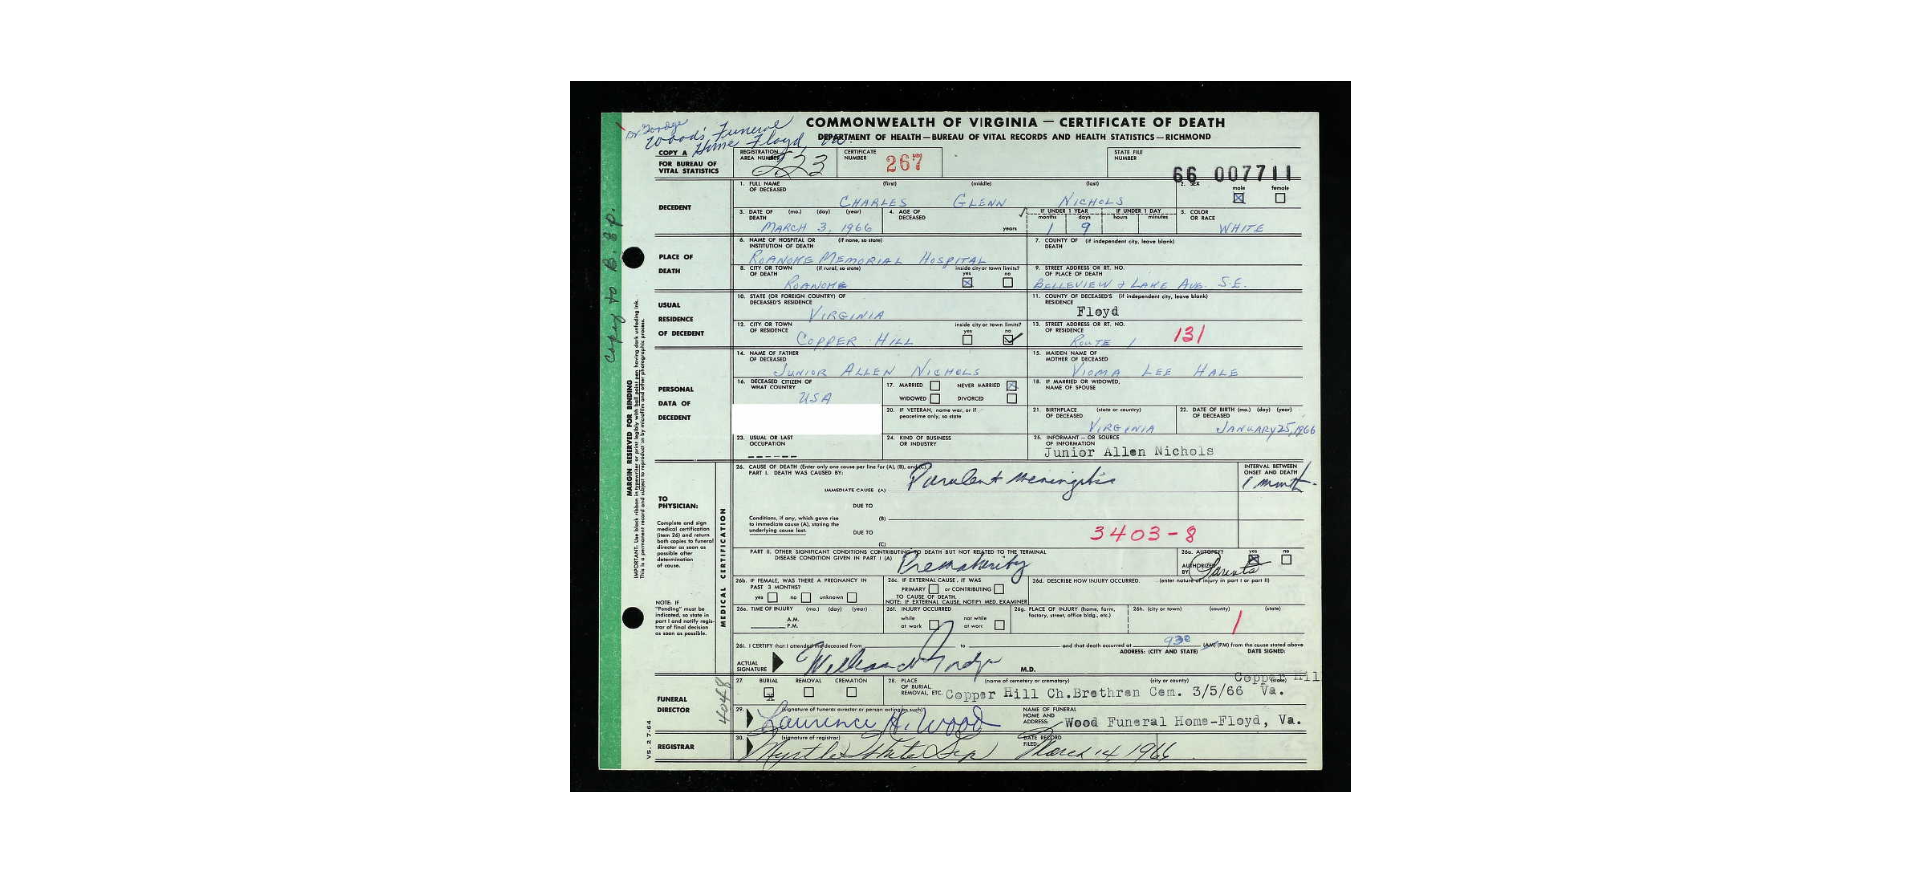 COMMONWEALTH OF VIRGINIA — CERTIFICATE OF DEATH
DEPARTMENT OF HEALTH—BUREAU OF VITAL RECORDS AND HEALTH STATISTICS—RICHMOND
Wood's Funeral
Home Floyd, Va.
COPY A
FOR BUREAU OF
VITAL STATISTICS
REGISTRATION AREA NUMBER
CERTIFICATE NUMBER 267
STATE FILE NUMBER
66 007711
DECEDENT
1. FULL NAME OF DECEASED (first) (middle) (last)
CHARLES GLENN NICHOLS
2. SEX male female
3. DATE OF DEATH (mo.) (day) (year)
MARCH 3, 1966
4. AGE OF DECEASED years
IF UNDER 1 YEAR months days
1 9
IF UNDER 1 DAY hours minutes
5. COLOR OR RACE
WHITE
PLACE OF DEATH
6. NAME OF HOSPITAL OR INSTITUTION OF DEATH (if none, so state)
ROANOKE MEMORIAL HOSPITAL
7. COUNTY OF DEATH (if independent city, leave blank)
8. CITY OR TOWN OF DEATH (if rural, so state) inside city or town limits? yes no
ROANOKE
9. STREET ADDRESS OR RT. NO. OF PLACE OF DEATH
BELLEVIEW & LAKE AVE. S.E.
USUAL RESIDENCE OF DECEDENT
10. STATE (OR FOREIGN COUNTRY) OF DECEASED'S RESIDENCE
VIRGINIA
11. COUNTY OF DECEASED'S RESIDENCE (if independent city, leave blank)
Floyd
12. CITY OR TOWN OF RESIDENCE inside city or town limits? yes no
COPPER HILL
13. STREET ADDRESS OR RT. NO. OF RESIDENCE
ROUTE 1
131
PERSONAL DATA OF DECEDENT
14. NAME OF FATHER OF DECEASED
JUNIOR ALLEN NICHOLS
15. MAIDEN NAME OF MOTHER OF DECEASED
VIOMA LEE HALE
16. DECEASED CITIZEN OF WHAT COUNTRY
USA
17. MARRIED NEVER MARRIED
WIDOWED DIVORCED
18. IF MARRIED OR WIDOWED, NAME OF SPOUSE
20. IF VETERAN, name war, or if peacetime only, so state
21. BIRTHPLACE OF DECEASED (state or country)
VIRGINIA
22. DATE OF BIRTH OF DECEASED (mo.) (day) (year)
JANUARY 25, 1966
23. USUAL OR LAST OCCUPATION
------
24. KIND OF BUSINESS OR INDUSTRY
25. INFORMANT — OR SOURCE OF INFORMATION
Junior Allen Nichols
TO PHYSICIAN:
Complete and sign
medical certification
(item 26) and return
both copies to funeral
director as soon as
possible after
determination
of cause.
NOTE: IF
"Pending" must be
indicated, so state in
part I and notify regis-
trar of final decision
as soon as possible.
MEDICAL CERTIFICATION
26. CAUSE OF DEATH (Enter only one cause per line for (A), (B), and (C))
PART I. DEATH WAS CAUSED BY:
IMMEDIATE CAUSE (A) Purulent meningitis
INTERVAL BETWEEN ONSET AND DEATH
1 month
DUE TO
Conditions, if any, which gave rise to immediate cause (A), stating the underlying cause last.
(B)
DUE TO
(C)
3403-8
PART II. OTHER SIGNIFICANT CONDITIONS CONTRIBUTING TO DEATH BUT NOT RELATED TO THE TERMINAL DISEASE CONDITION GIVEN IN PART I (A)
Prematurity
26a. AUTOPSY? yes no
AUTHORIZED BY Parents
26b. IF FEMALE, WAS THERE A PREGNANCY IN PAST 3 MONTHS?
yes no unknown
26c. IF EXTERNAL CAUSE, IT WAS
PRIMARY or CONTRIBUTING
TO CAUSE OF DEATH.
NOTE: IF EXTERNAL CAUSE, NOTIFY MED. EXAMINER
26d. DESCRIBE HOW INJURY OCCURRED. (enter nature of injury in part I or part II)
26e. TIME OF INJURY (mo.) (day) (year)
A.M.
P.M.
26f. INJURY OCCURRED
while at work not while at work
26g. PLACE OF INJURY (home, farm, factory, street, office bldg., etc.)
26h. (city or town) (county) (state)
1
26i. I CERTIFY that I attended the deceased from to and that death occurred at 930 (AM) (PM) from the cause stated above
ADDRESS: (CITY AND STATE) DATE SIGNED:
ACTUAL SIGNATURE
M.D.
FUNERAL DIRECTOR
27. BURIAL REMOVAL CREMATION
28. PLACE OF BURIAL, REMOVAL, ETC. (name of cemetery or crematory) (city or county) (state)
Copper Hill
Copper Hill Ch.Brethren Cem. 3/5/66 Va.
29. (signature of funeral director or person acting as such)
Laurence H. Wood
NAME OF FUNERAL HOME AND ADDRESS
Wood Funeral Home-Floyd, Va.
REGISTRAR
30. (signature of registrar)
DATE RECORD FILED:
March 14, 1966
VS. 2 7-64
4048
copy to B.B.P.
MARGIN RESERVED FOR BINDING